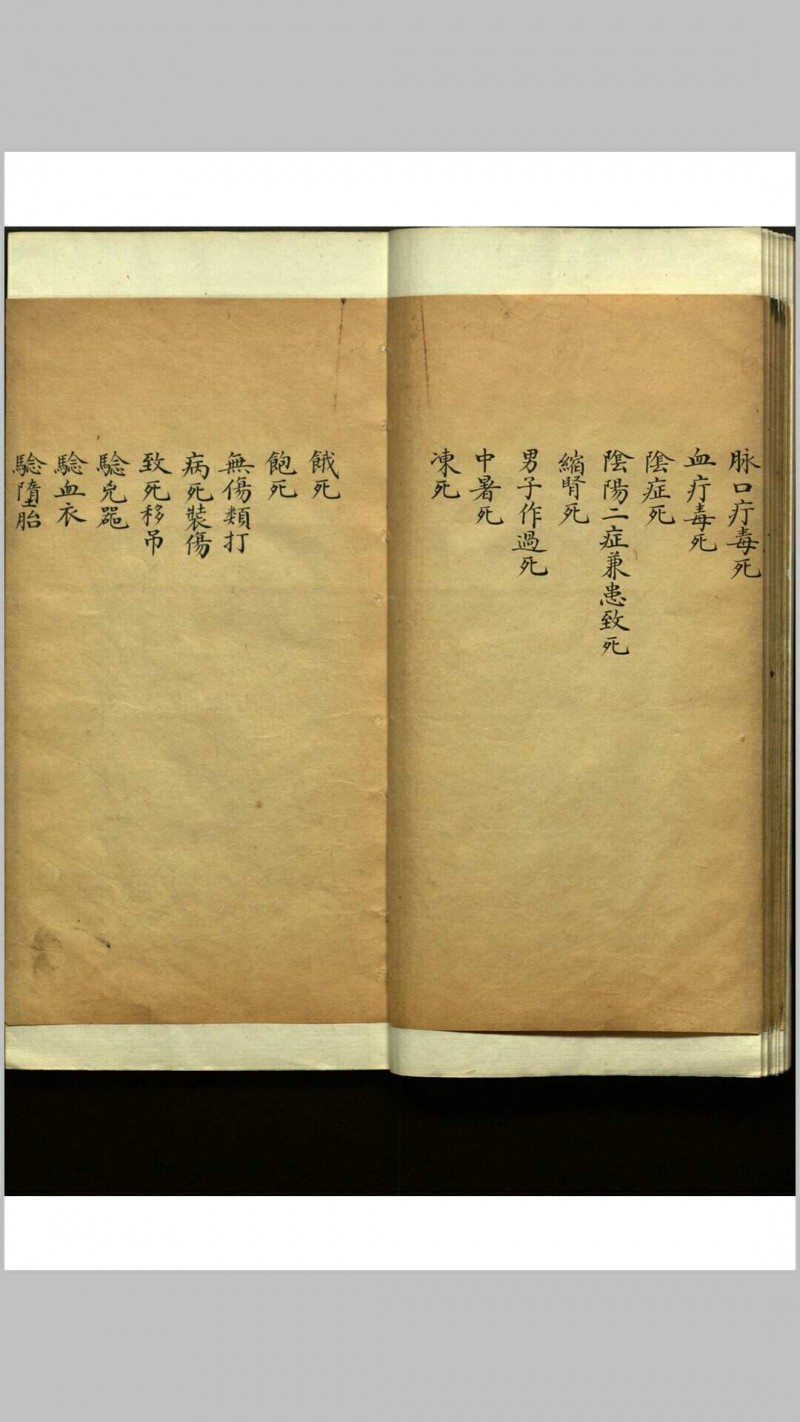 脉口疔毒死
血疔毒死
陰症死
陰陽二症兼患致死
縮腎死
男子作過死
中暑死
凍死
餓死
飽死
無傷類打
病死裝傷
致死移吊
驗兇器
驗血衣
驗墮胎